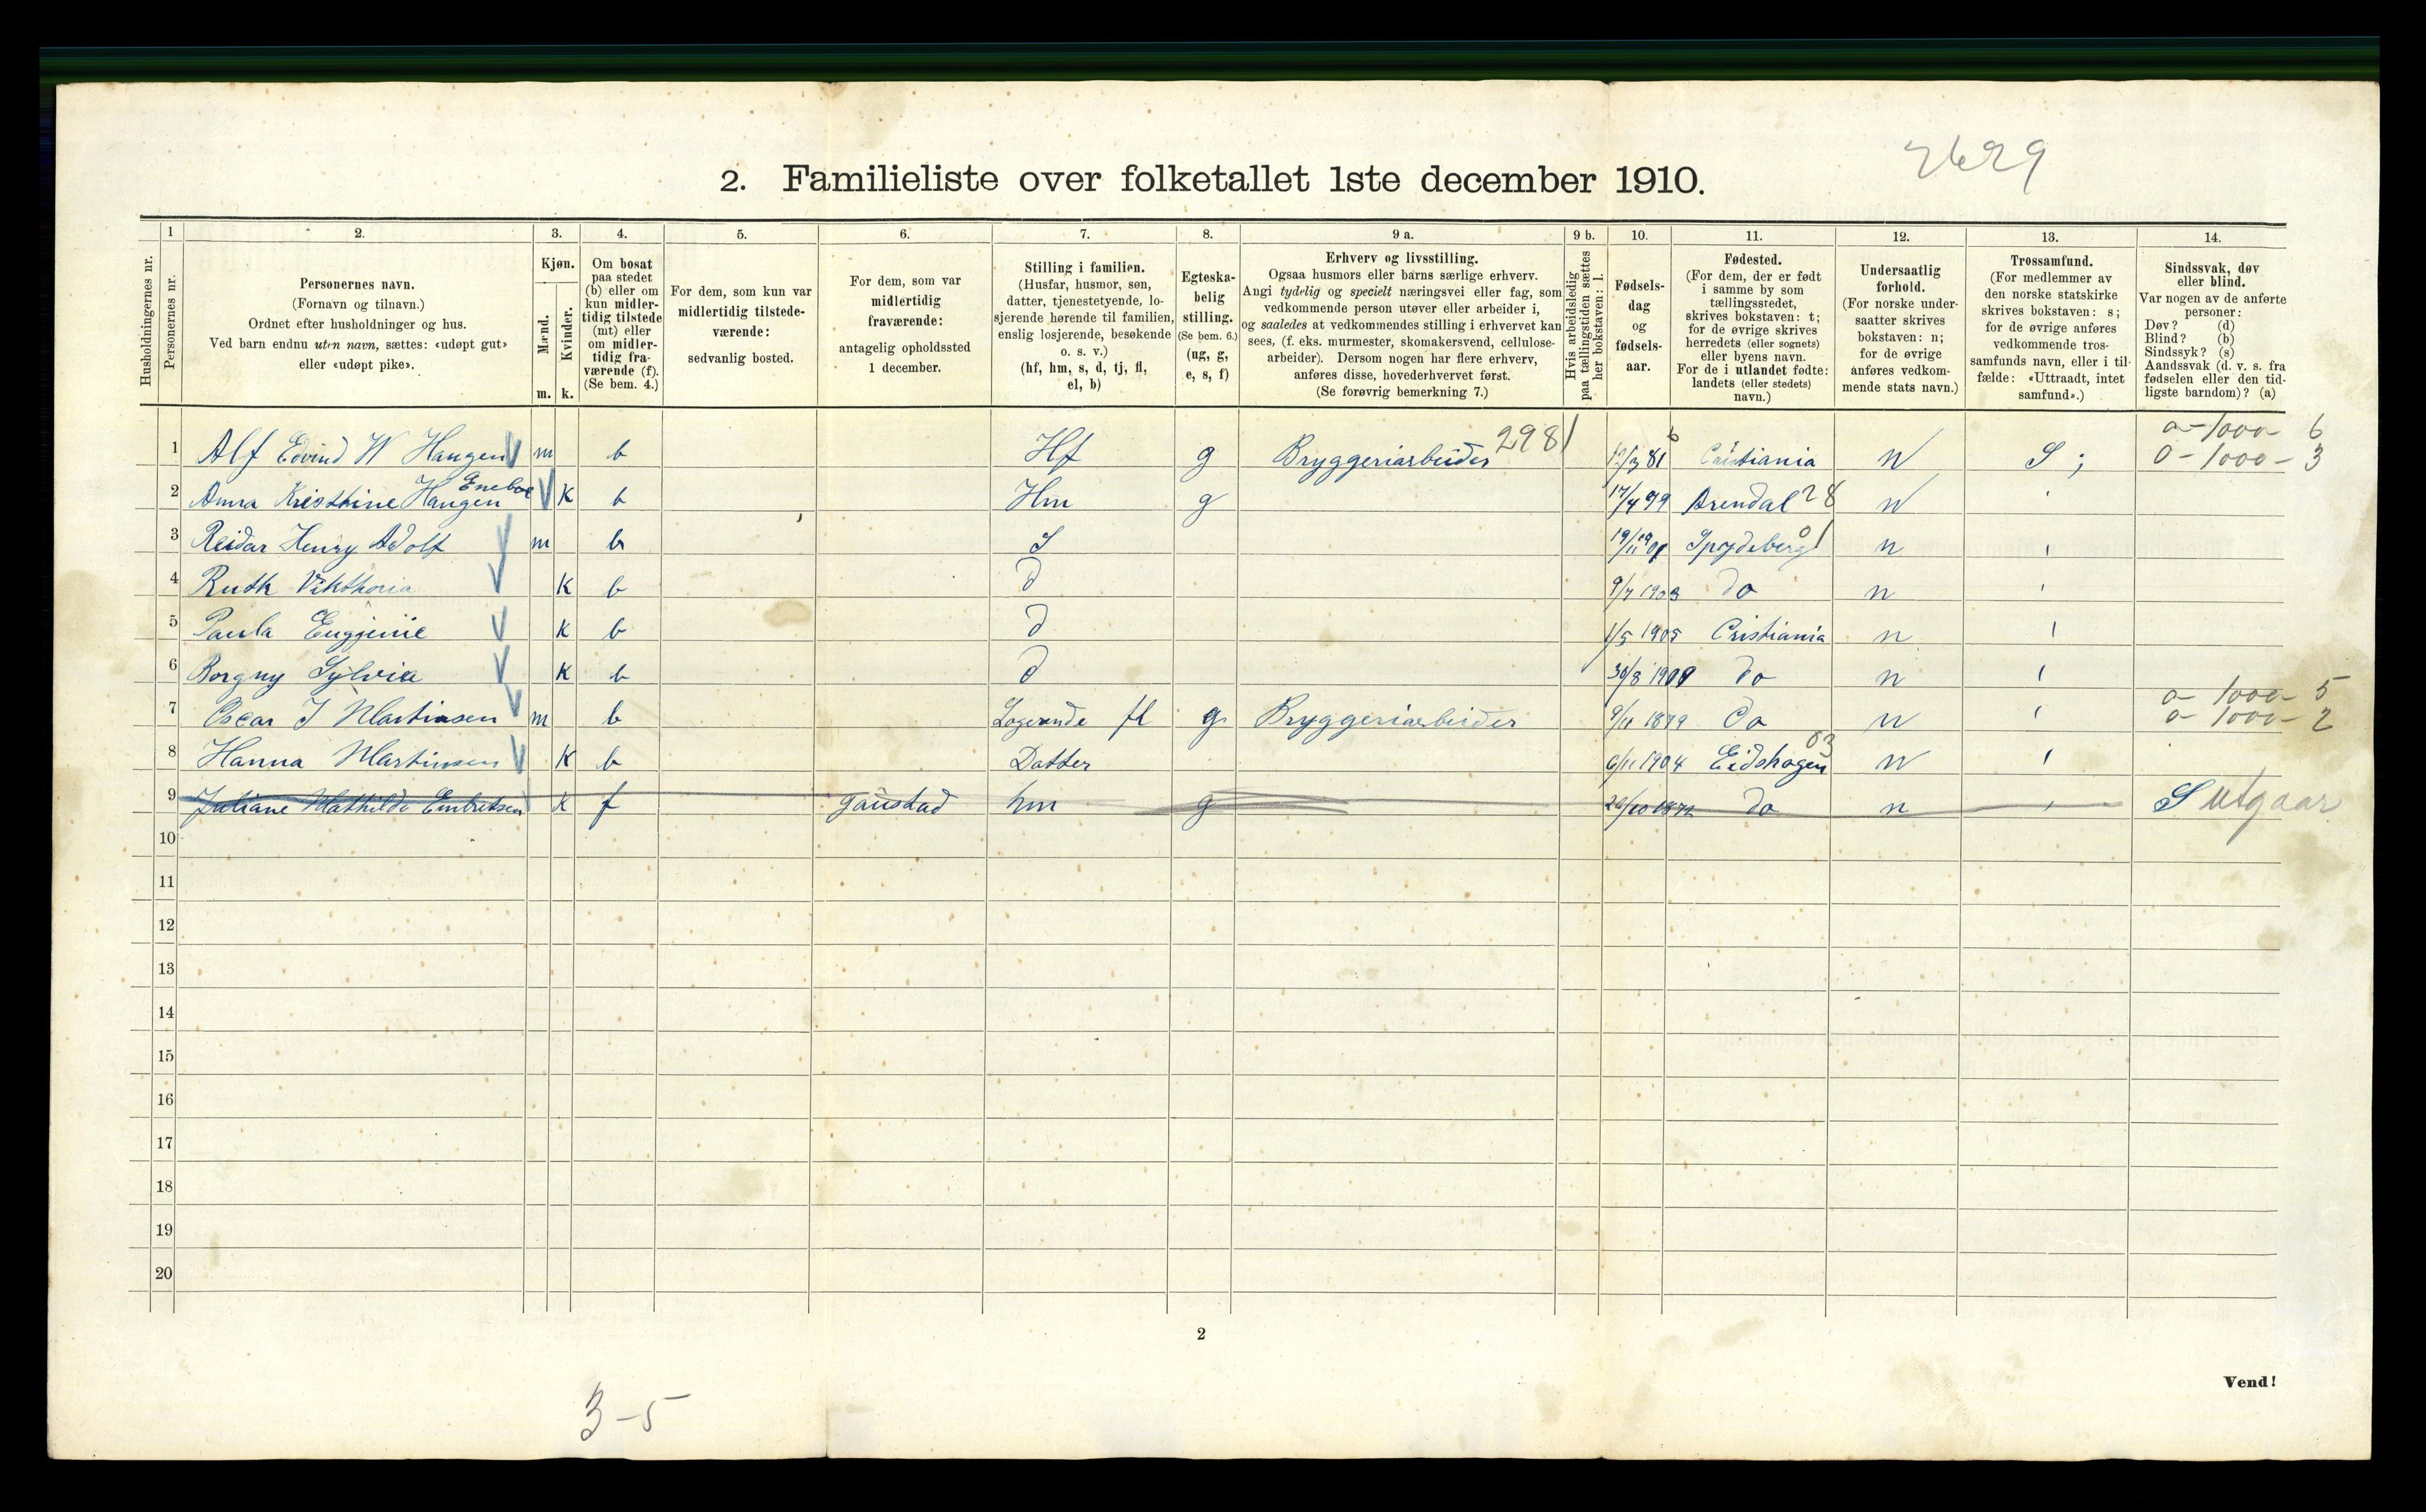 2629
2. Familieliste over folketallet 1ste december 1910.
Husholdningernes nr.
1
Personernes nr.
2.
Personernes navn.
(Fornavn og tilnavn.)
Ordnet efter husholdninger og hus.
Ved barn endnu uten navn, sættes: «udøpt gut»
eller «udøpt pike».
3.
Kjøn.
Mænd.
Kvinder.
m. k.
4.
Om bosat
paa stedet
(b) eller om
kun midler-
tidig tilstede
(mt) eller
om midler-
tidig fra-
værende (f).
(Se bem. 4.)
5.
For dem, som kun var
midlertidig tilstede-
værende:
sedvanlig bosted.
6.
For dem, som var
midlertidig
fraværende:
antagelig opholdssted
1 december.
7.
Stilling i familien.
(Husfar, husmor, søn,
datter, tjenestetyende, lo-
sjerende hørende til familien,
enslig losjerende, besøkende
o. s. v.)
(hf, hm, s, d, tj, fl,
el, b)
8.
Egteska-
belig
stilling.
(Se bem. 6.)
(ug, g,
e, s, f)
9 a.
Erhverv og livsstilling.
Ogsaa husmors eller barns særlige erhverv.
Angi tydelig og specielt næringsvei eller fag, som
vedkommende person utøver eller arbeider i,
og saaledes at vedkommendes stilling i erhvervet kan
sees, (f. eks. murmester, skomakersvend, cellulose-
arbeider). Dersom nogen har flere erhverv,
anføres disse, hovederhvervet først.
(Se forøvrig bemerkning 7.)
9 b.
Hvis arbeidsledig
paa tællingstiden sættes
her bokstaven: l.
10.
Fødsels-
dag
og
fødsels-
aar.
11.
Fødested.
(For dem, der er født
i samme by som
tællingsstedet,
skrives bokstaven: t;
for de øvrige skrives
herredets (eller sognets)
eller byens navn.
For de i utlandet fødte:
landets (eller stedets)
navn.)
12.
Undersaatlig
forhold.
(For norske under-
saatter skrives
bokstaven: n;
for de øvrige
anføres vedkom-
mende stats navn.)
13.
Trossamfund.
(For medlemmer av
den norske statskirke
skrives bokstaven: s;
for de øvrige anføres
vedkommende tros-
samfunds navn, eller i til-
fælde: «Uttraadt, intet
samfund».)
14.
Sindssvak, døv
eller blind.
Var nogen av de anførte
personer:
Døv? (d)
Blind? (b)
Sindssyk? (s)
Aandssvak (d. v. s. fra
fødselen eller den tid-
ligste barndom)? (a)
2981 0-1000- 6
1 Alf Edvind W Haugen m b Hf g Bryggeriarbeider 81 Cristiania N S ; 0-1000-3
Eneboe
2 Anna Kristhine Haugen K b Hm g 17/4 Arendal 28 N
3 Reidar Henry Adolf m b S Spydeberg 01 n
4 Ruth Vikthoria K b d 9/7 1903 do n
5 Paula Eugjenie K b d 1/5 1905 Cristiania n
6 Borgny Sylvia K b d 30/8 190 do n
0-1000-5
7 Oscar J Martinsen m b Logerende fl g Bryggeriarbeider 9/11 1879 do N 0-1000-2
03
8 Hanna Martinsen K b Datter 6/11 1904 Eidshagen N
9 Juliane Mathilde Embretsen K f Gaustad hm g 1872 do n S utgaar
10
11
12
13
14
15
16
17
18
19
20
2
Vend!
3-5